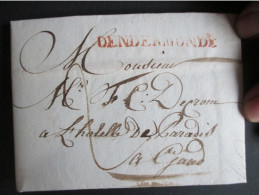 DENDERMONDE
Monsieur
Mr. F. C: Deproost
a L'hatelle De Paradis
a Gand